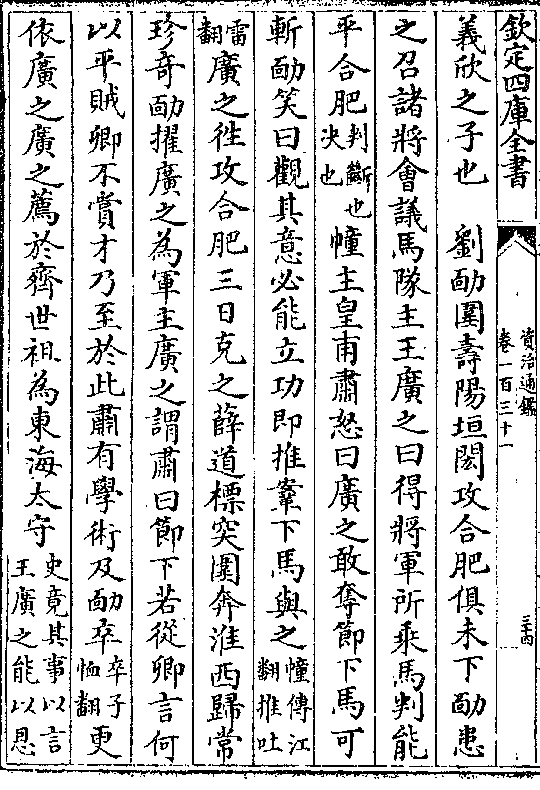 欽定四庫全書
資治通鑑
卷一百三十一
三十四
義欣之子也　劉勔圍壽陽垣閎攻合肥俱未下勔患
之召諸將會議馬隊主王廣之曰得將軍所乘馬判能
平合肥判斷也决也幢主皇甫肅怒曰廣之敢奪節下馬可
斬勔笑曰觀其意必能立功即推鞌下馬與之幢傳江翻推吐
雷翻廣之往攻合肥三日克之薛道標突圍奔淮西歸常
珍奇勔擢廣之為軍主廣之謂肅曰節下若從卿言何
以平賊卿不賞才乃至於此肅有學術及勔卒卒子恤翻更
依廣之廣之薦於齊世祖為東海太守史竟其事以言王廣之能以恩